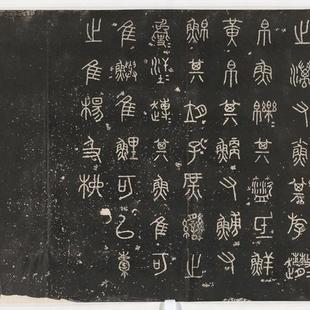 之澫又小魚其斿䟃
帛魚皪其盜氐鮮
黃帛其鯾又鰟又
鮊其𦙫孔庶臠之
㚟汪趚其魚隹可
隹鱮隹鯉可以橐
之隹楊及柳